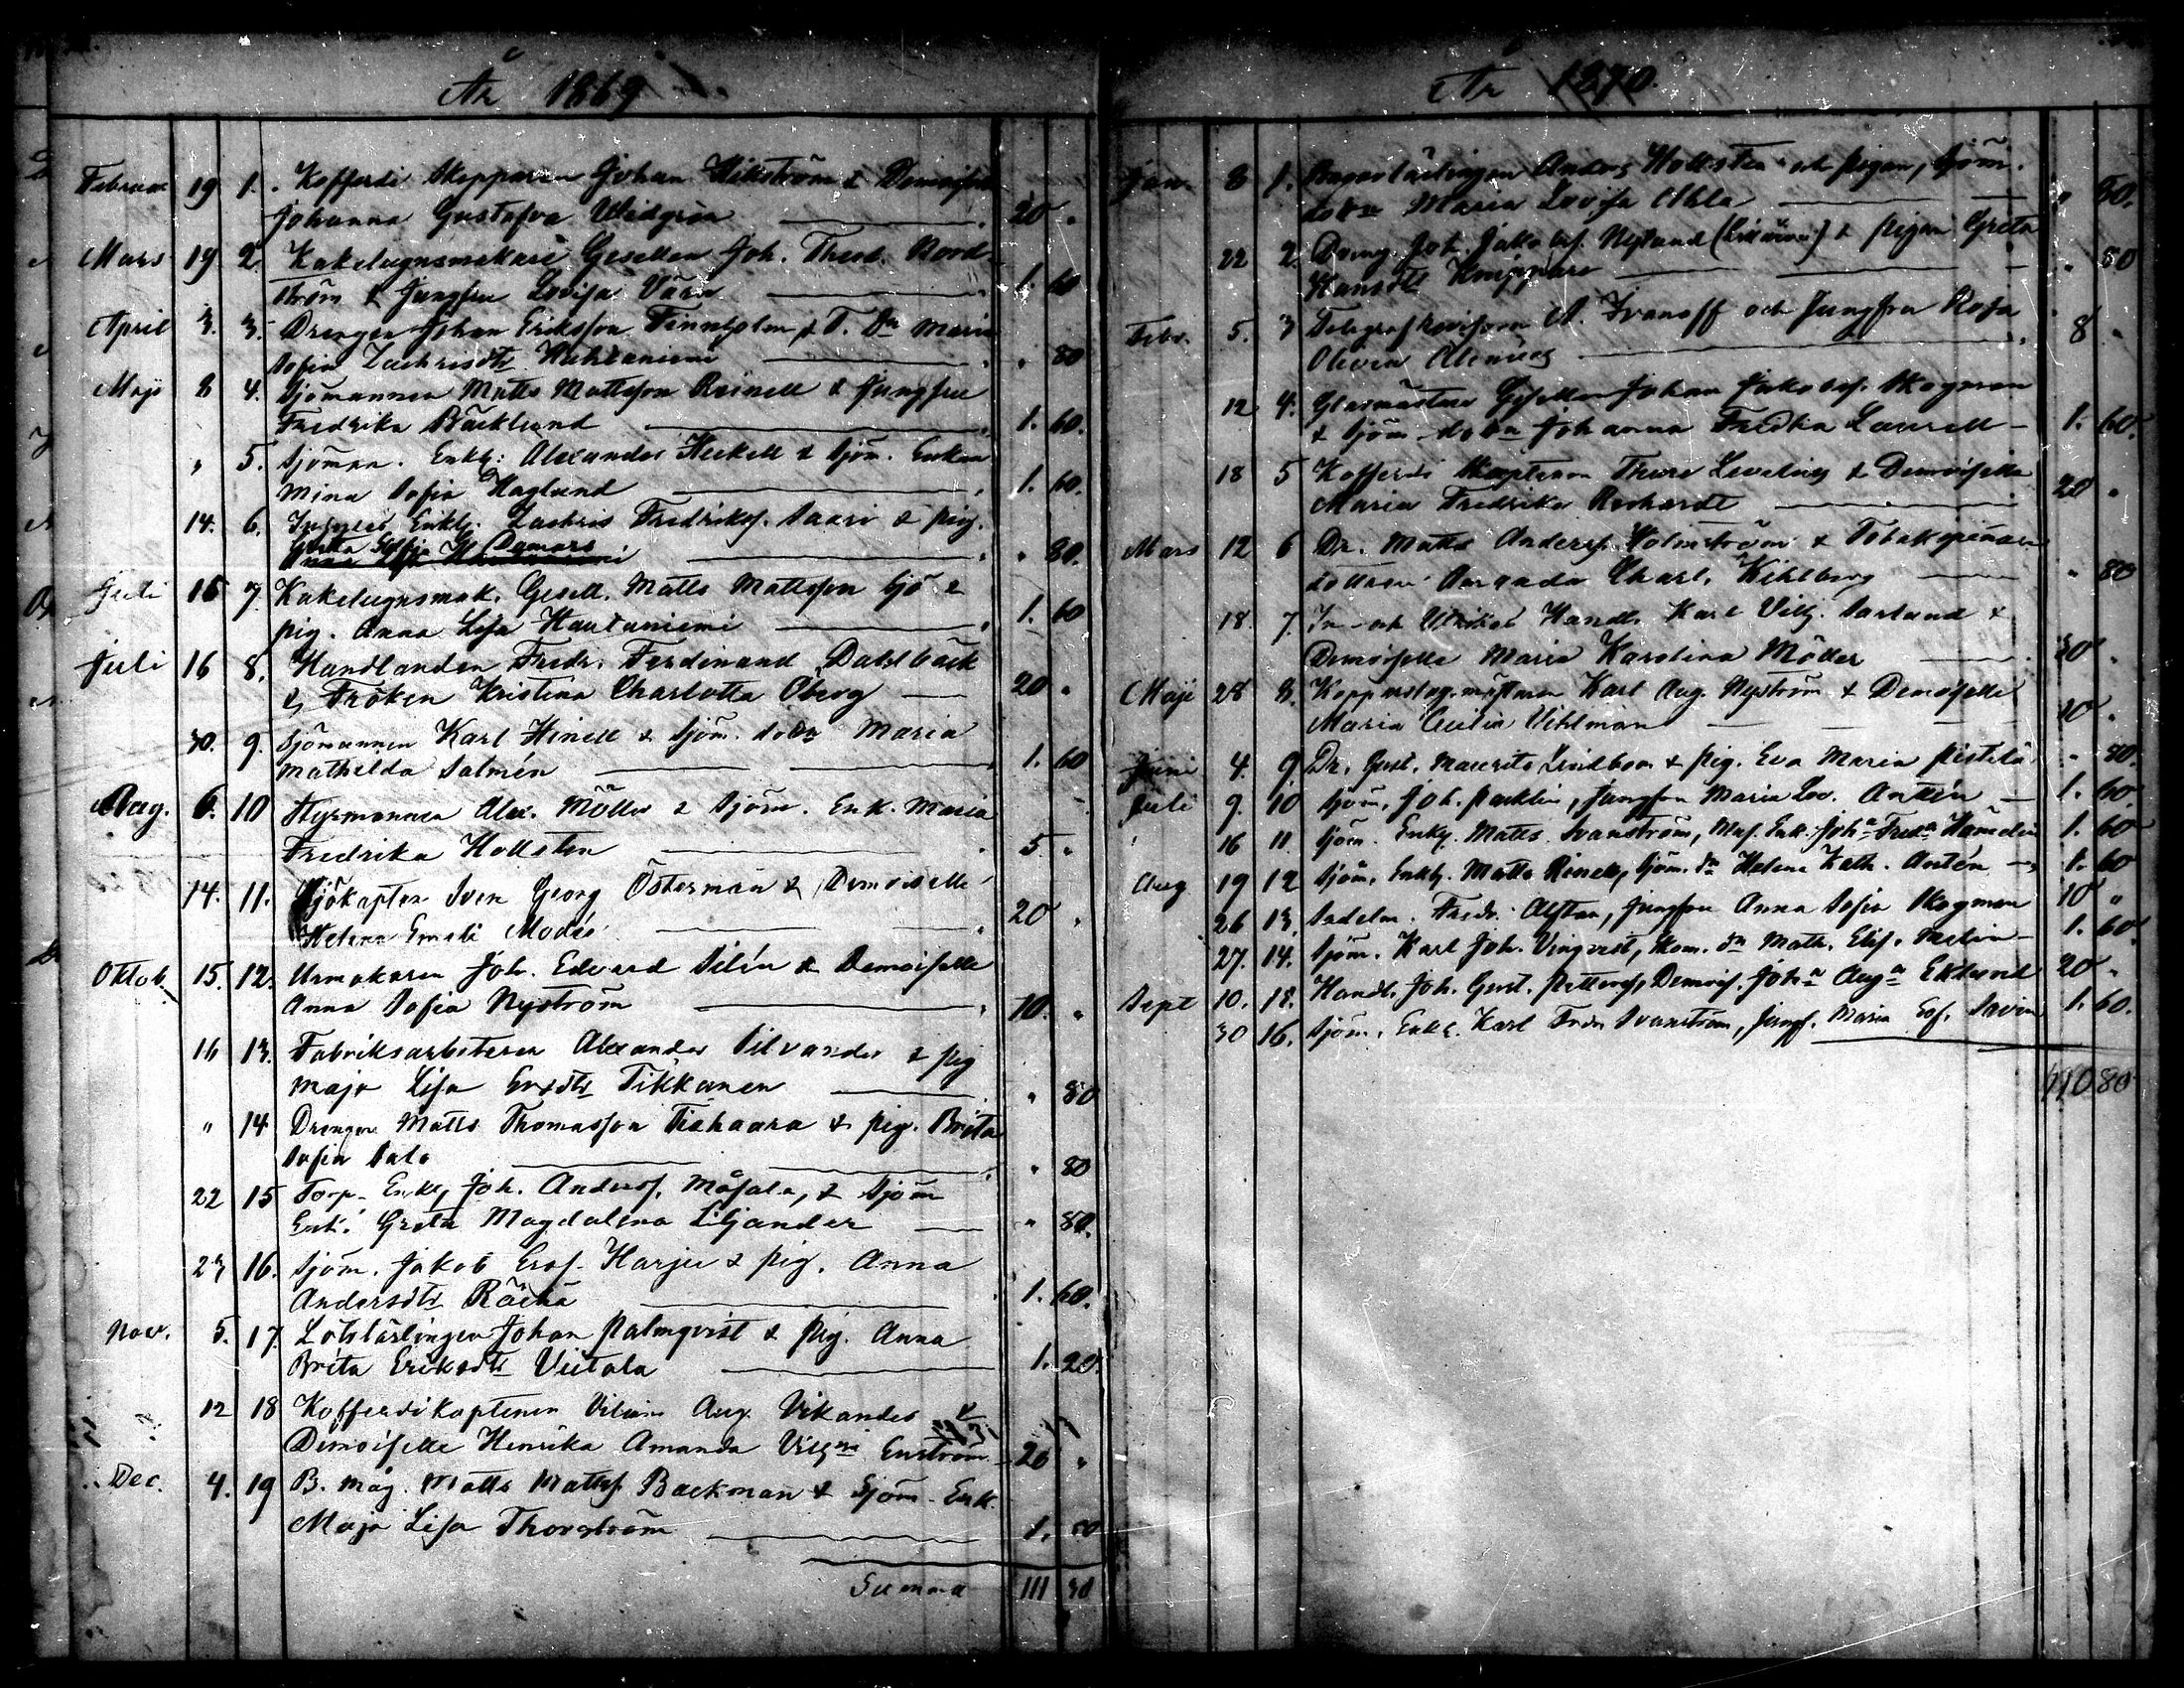 År 1869
Februari 19 1. Kofferdi Skepparen Johan Wikström & Demoiselle
Johanna Gustafva Widgren 20 "
Mars 19 2. Kakelugnsmakare Gesellen Joh. Theod. Nord-
ström & Jungfru Lovisa Vasa 1. 60
April 3. 3. Drengen Johan Eriksson Finnholm & T. dn Maria
Sofia Zachrisdtr " 80
Maji 8 4. Sjömannen Matts Mattsson Reinell & Jungfru
Fredrika Bäcklund 1. 60.
" 5. Sjöman. Enkl: Alexander Heikell & Sjöm. Enkan
Mina Sofia Haglund 1. 60.
14. 6. Enkl. Zachris Fredriksf. Saari & pig.
Greta " 80.
Juli 15 7. Kakelugnsmak. Gesell. Matts Mattsson Sjö &
pig. Anna Lisa Hautaniemi 1. 60
Juli 16 8. Handlanden Fredr. Ferdinand Dahlbäck
& Fröken Kristina Charlotta Oberg 20 "
30. 9. Sjömannen Karl Hinell & Sjöm. dottr Maria
Mathilda Salmén 1. 60
Aug. 6. 10 Styrmannen Alex. Möller & Sjöm. Enk. Maria
Fredrika Hollsten 5 "
14. 11. Sjökapten Sven Georg Österman & Demoiselle
Helena Emeli Modée 20 "
Oktob 15. 12. Urmakaren Joh. Edvard Silén & Demoiselle
Anna Sofia Nyström 10. "
16 13. Fabriksarbetaren Alexander Silvander & pig
Maja Lisa Tikkanen " 80
" 14 Drengen Matts Thomasson Tiahaara & pig. Brita
Sofia Salo " 80
22 15 Torp. Enkl, Joh. Andersf. Måsala, & Sjöm
Enk. Greta Magdalena Liljander " 80.
23 16. Sjöm. Jakob Ersf. Harju & pig. Anna
Andersdtr Räihä 1. 60.
Nov. 5. 17. Lotslärlingen Johan Palmqvist & Pig. Anna
Brita Eriksdtr Viitala 1. 20.
12 18 Kofferdikaptenen Vilium Aug. Vikander &
Demoiselle Henrika Amanda Enström 20 "
Dec. 4. 19 B. Måg. Matts Mattsf. Backman & Sjöm. Enk.
Maja Lisa Thorström 1.
Summa 111
År 1870.
Jan. 8 1. Anders Hollsten och pigan, Sjöm.
dottr Maria Lovisa " 80.
22 2. Dreng Joh. Jakobsf. Nylund & pigan Greta
Hansdtr Knippare " 80
Febr. 5. 3 Telegraf Revisorn A. Ivanoff och Jungfru Rosa
Olivia Alenius 8 "
12 4. Glasmästare Gesellen Johan Jakobsf. Skogman
& Sjöm. dottr Johanna Fredka Laurell 1. 60.
18 5 Kofferdi Kaptenen Thure Levelius & Demoiselle
Maria Fredrika Rechardt 20 "
Mars 12 6 Dr. Matts Andersf. Holmström & Tobakspinnare
dottren Charl. Kihlberg " 80
18. 7. In- och Utrikes Handl. Karl Vilh. Sarlund &
Demoiselle Maria Karolina Möller 20 "
Maji 28 8. Kopparslag. mästaren Karl Aug. Nyström & Demoiselle
Maria Cecilia Vihlman 10 "
Juni 4. 9. Dr. Gust. Mauritz Lindbom & pig. Eva Maria Pistilä " 80.
Juli 9. 10 Sjöm. Joh. Packlin, Jungfru Maria Lov. Antén 1. 60.
16 11 Sjöm. Enkl. Matts Svanström, Enk. Joha Freda Hamelin 1. 60
Aug 19 12 Sjöm. Enkl. Matts Rinell, Sjöm. dn Helena Kath. Antén 1. 60
26 13. Fredr. Alstan, Jungfru Anna Sofia Skogman 10 "
27. 14. Sjöm. Karl Joh. Vinqvist, Math. Elis. 1. 60.
Sept 10. 15. Handl. Joh. Gust. Pettersf, Demois. Joha Auga Eklund 20 "
30 16. Sjöm. Enkl. Karl Fredr Svanström, Jungf. Maria Sof. Savin 1. 60.
110 80